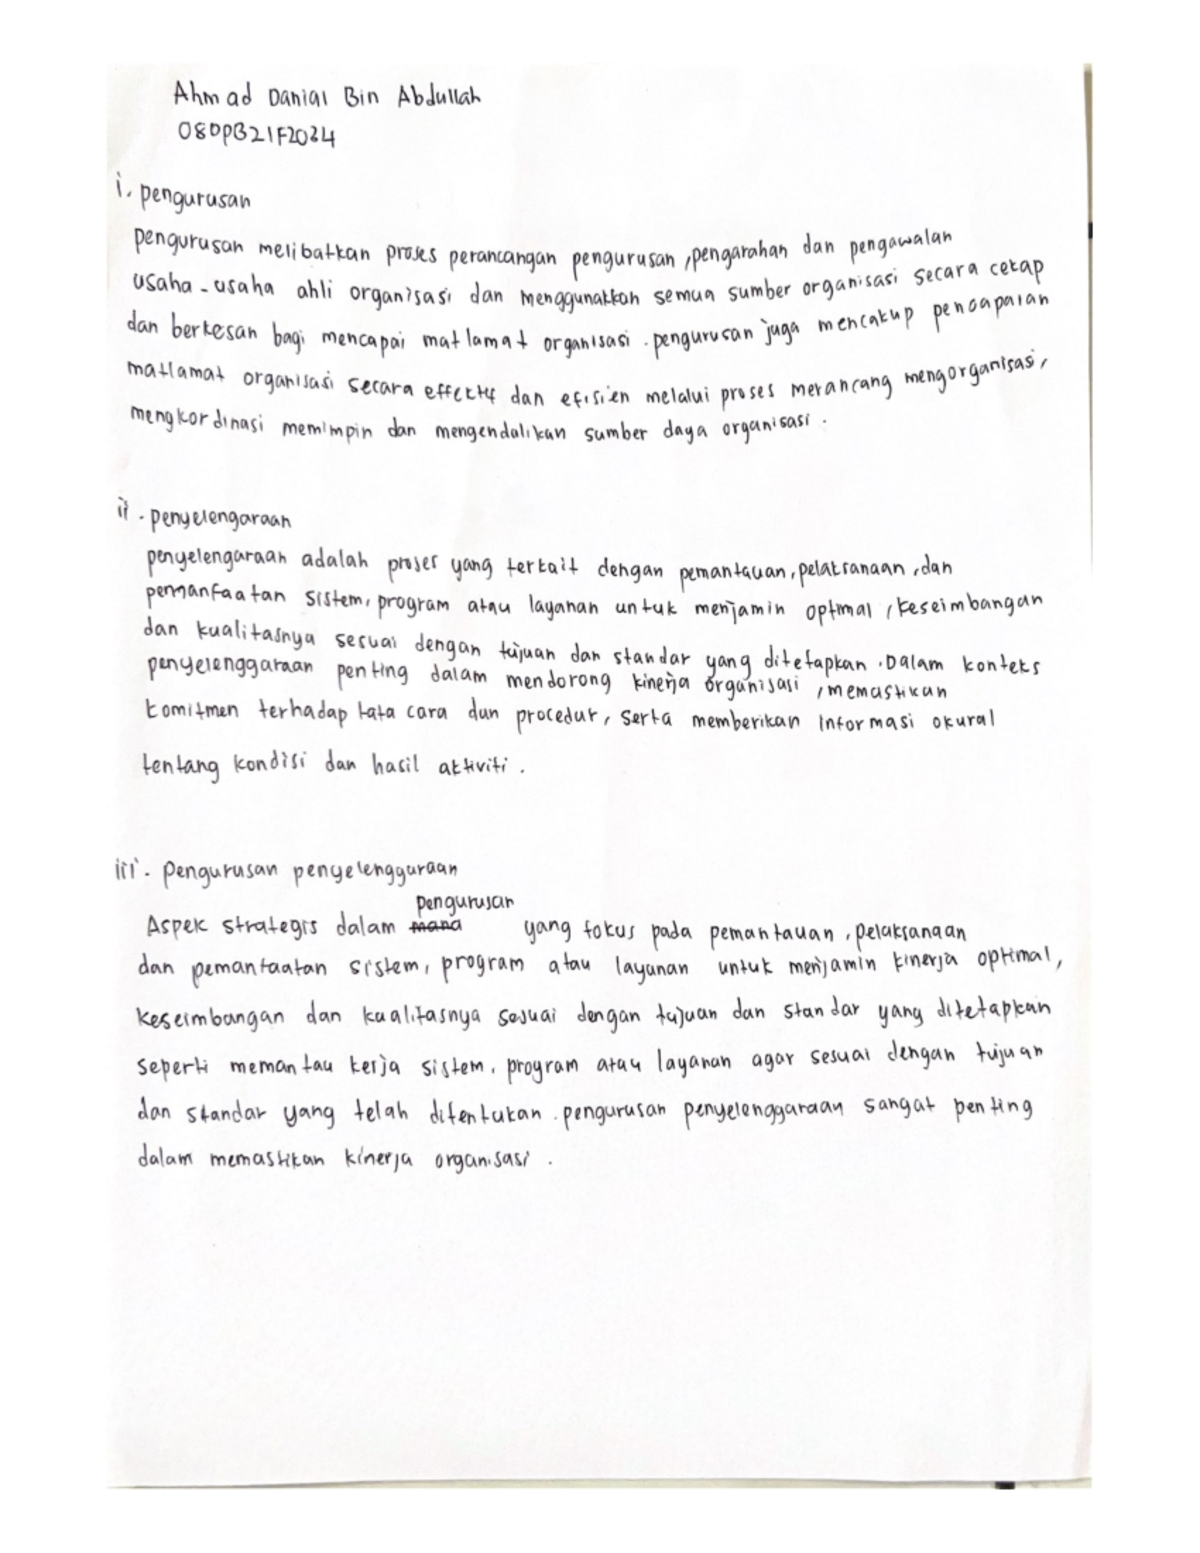 Ahmad Danial Bin Abdullah
08DPB21F2034
i. pengurusan
pengurusan melibatkan proses perancangan pengurusan, pengarahan dan pengawalan
usaha-usaha ahli organisasi dan menggunakkan semua sumber organisasi secara cekap
dan berkesan bagi mencapai matlamat organisasi. pengurusan juga mencakup pencapaian
matlamat organisasi secara effektif dan efisien melalui proses merancang mengorganisasi,
mengkordinasi memimpin dan mengendalikan sumber daya organisasi.
ii. penyelengaraan
penyelengaraan adalah proses yang terkait dengan pemantauan, pelaksanaan, dan
pemanfaatan sistem, program atau layanan untuk menjamin optimal, keseimbangan
dan kualitasnya sesuai dengan tujuan dan standar yang ditetapkan. Dalam konteks
penyelenggaraan penting dalam mendorong kinerja organisasi, memastikan
komitmen terhadap tata cara dan procedur, serta memberikan informasi okural
tentang kondisi dan hasil aktiviti.
iii. Pengurusan penyelenggaraan
pengurusan
Aspek strategis dalam mana yang fokus pada pemantauan, pelaksanaan
dan pemantaatan sistem, program atau layanan untuk menjamin kinerja optimal,
keseimbangan dan kualitasnya sesuai dengan tujuan dan standar yang ditetapkan
seperti memantau kerja sistem, program atau layanan agar sesuai dengan tujuan
dan standar yang telah ditentukan. pengurusan penyelenggaraan sangat penting
dalam memastikan kinerja organisasi.